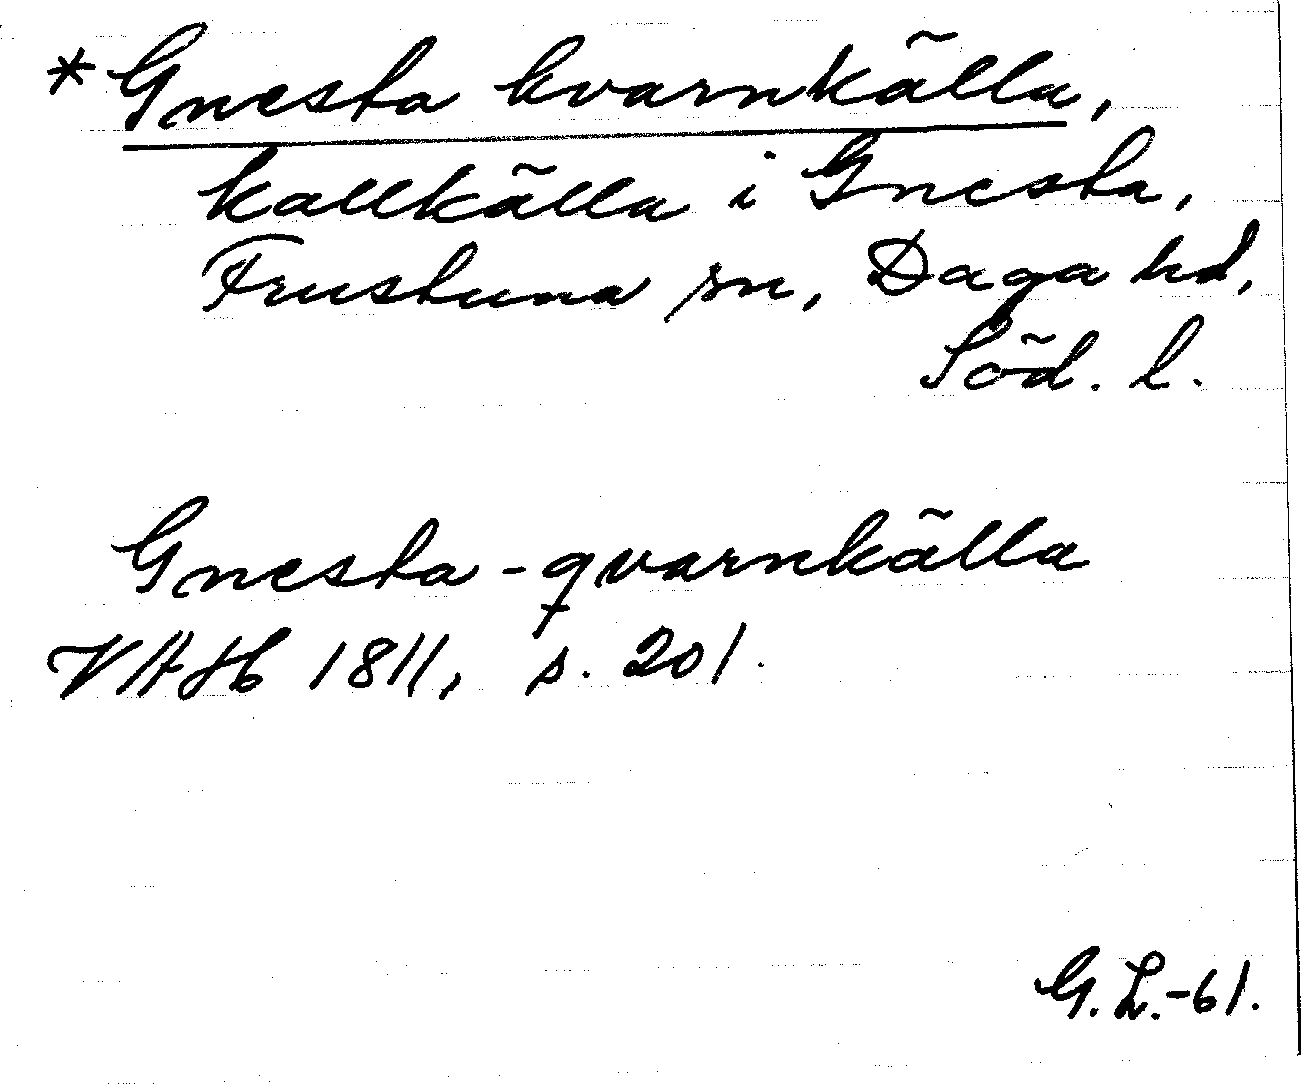 *Gnesta kvarnkälla,
kallkälla i Gnesta,
Frustuna sn, Daga hd,
Söd. l.
Gnesta-qvarnkälla
VAH 1811, s. 201.
G.L.-61.